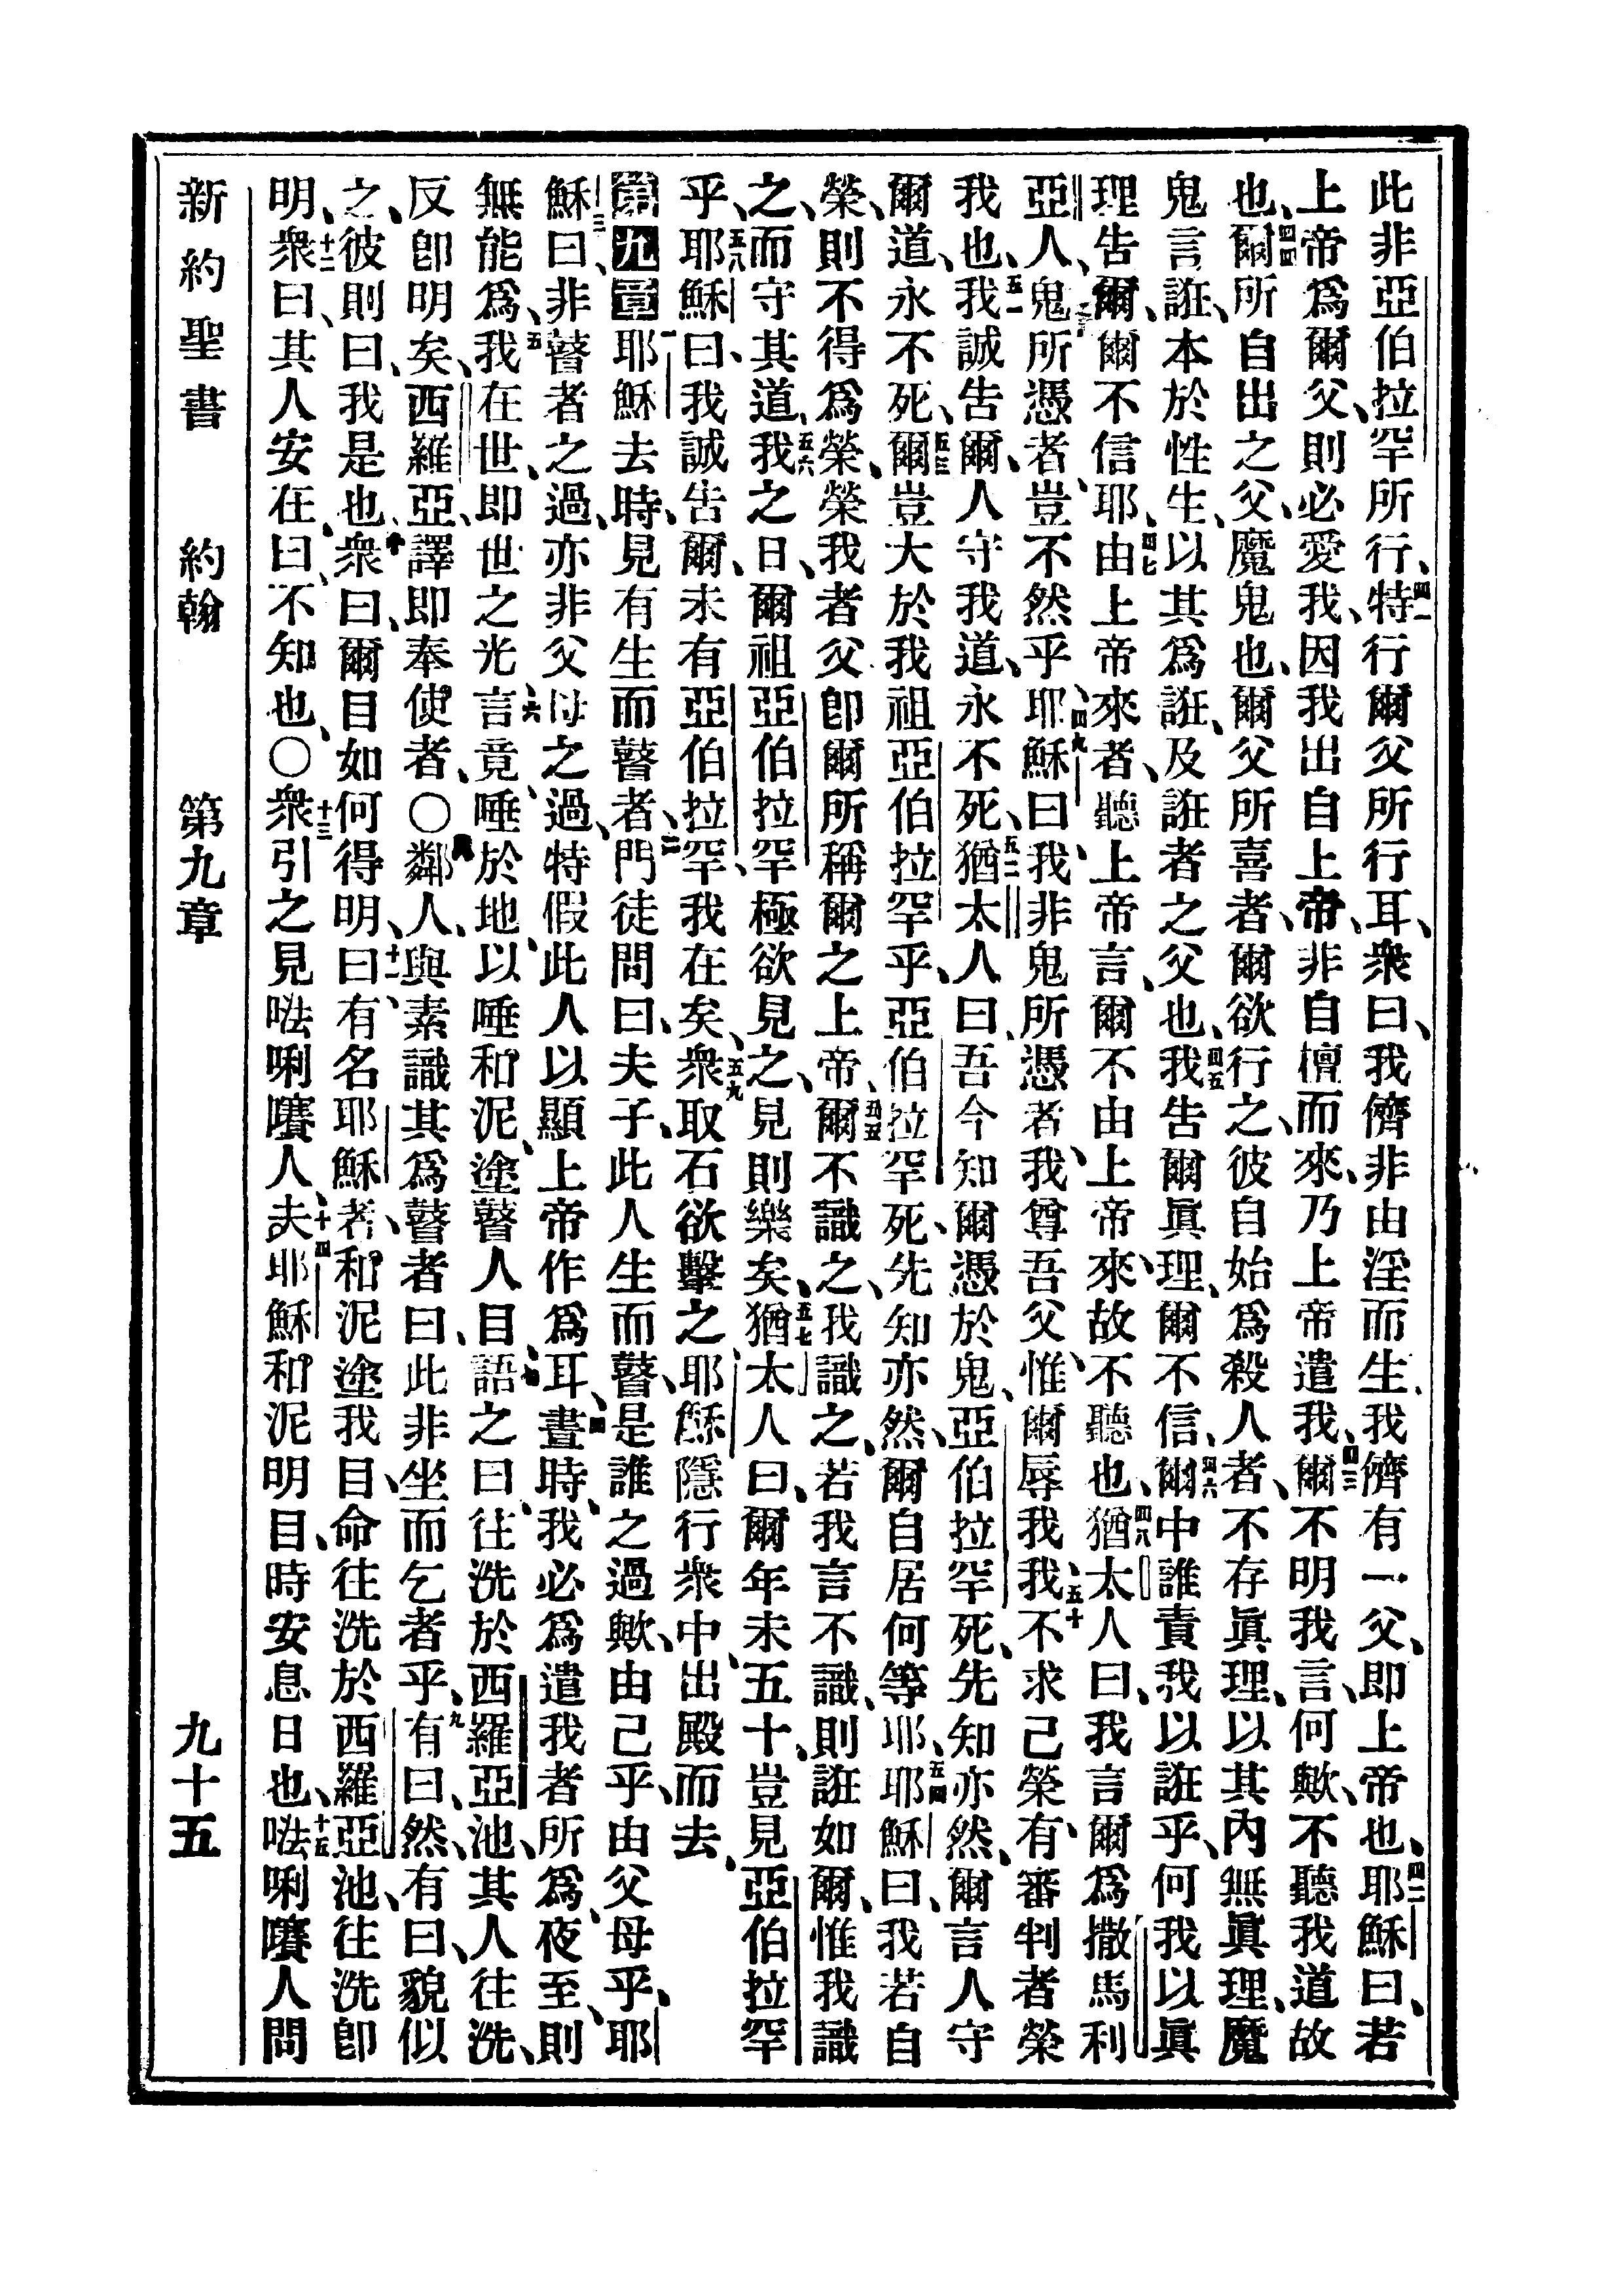 此非亞伯拉罕所行、四一特行爾父所行耳、衆曰、我儕非由淫而生、我儕有一父、即上帝也、四二耶穌曰、若
上帝爲爾父、則必愛我、因我出自上帝、非自檀而來、乃上帝遣我、四三爾不明我言、何歟、不聽我道故
也、四四爾所自出之父、魔鬼也、爾父所喜者、爾欲行之、彼自始爲殺人者、不存眞理、以其內無眞理、魔
鬼言誑、本於性生、以其爲誑、及誑者之父也、四五我告爾眞理、爾不信、四六爾中誰責我以誑乎、何我以眞
理告爾、爾不信耶、四七由上帝來者、聽上帝言、爾不由上帝來、故不聽也、四八猶太人曰、我言爾爲撒馬利
亞人、鬼所憑者、豈不然乎、四九耶穌曰、我非鬼所憑者、我尊吾父、惟爾辱我、五十我不求己榮、有審判者榮
我也、五一我誠告爾、人守我道、永不死、五二猶太人曰、吾今知爾憑於鬼、亞伯拉罕死、先知亦然、爾言人守
爾道、永不死、五三爾豈大於我祖亞伯拉罕乎、亞伯拉罕死、先知亦然、爾自居何等耶、五四耶穌曰、我若自
榮、則不得爲榮、榮我者父、卽爾所稱爾之上帝、五五爾不識之、我識之、若我言不識、則誑如爾、惟我識
之、而守其道、五六我之日、爾祖亞伯拉罕極欲見之、見則樂矣、五七猶太人曰、爾年未五十、豈見亞伯拉罕
乎、五八耶穌曰、我誠告爾、未有亞伯拉罕、我在矣、五九衆取石欲擊之、耶穌隱行衆中、出殿而去、
第九章 一耶穌去時、見有生而瞽者、二門徒問曰、夫子、此人生而瞽、是誰之過歟、由己乎、由父母乎、三耶
穌曰、非瞽者之過、亦非父母之過、特假此人以顯上帝作爲耳、四晝時、我必爲遣我者所爲、夜至、則
無能爲、五我在世、即世之光、六言竟、唾於地、以唾和泥、塗瞽人目、七語之曰、往洗於西羅亞池、其人往洗、
反卽明矣、西羅亞、譯即奉使者、〇八鄰人、與素識其爲瞽者曰、此非坐而乞者乎、九有曰、然、有曰、貌似
之、彼則曰、我是也、十衆曰、爾目如何得明、十一曰、有名耶穌者、和泥塗我目、命往洗於西羅亞池、往洗卽
明、十二衆曰、其人安在、曰、不知也、〇十三衆引之見𠵽唎㘔人、十四夫耶穌和泥明目、時安息日也、十五𠵽唎㘔人問
新約聖書 約翰 第九章 九十五